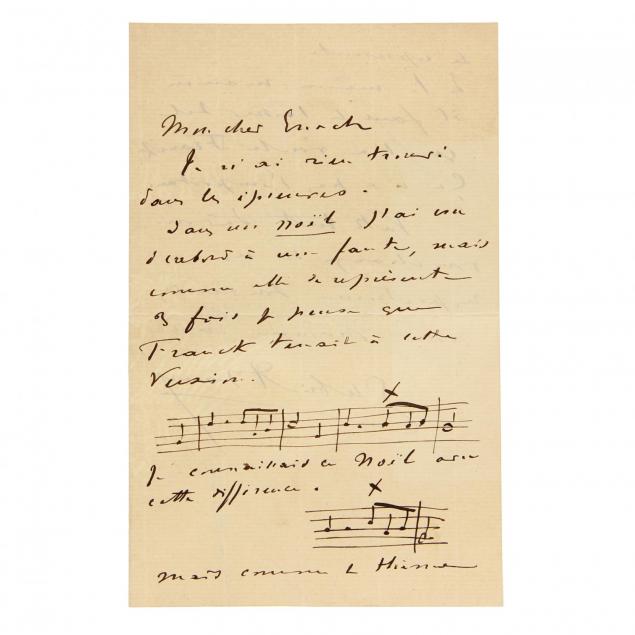 Mon cher Enoch
Je n'ai rien trouvé
dans les épreuves.
dans un noël j'ai cru
d'abord à une faute, mais
comme elle se représente
3 fois je pense que
Franck tenait à cette
Version.
X
Je connaissais ce Noël avec
cette différence.
X
mais comme le